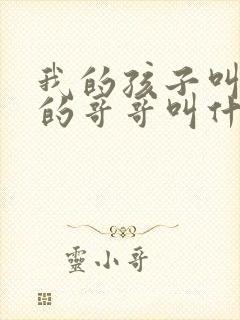 我的孩子叫
的哥哥叫什
靈小哥